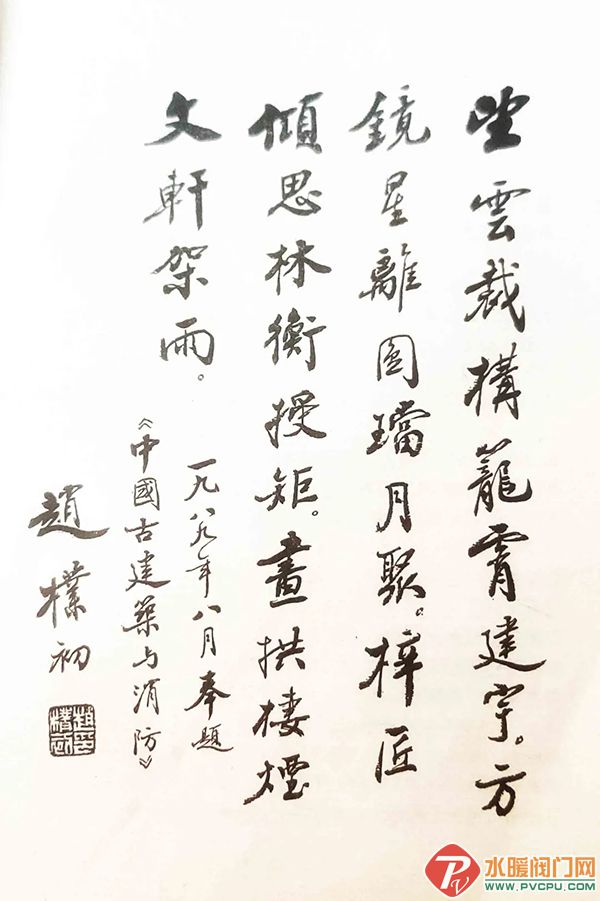 望雲裁構籠霄建宇。方
鏡星離圓璫月聚。梓匠
傾思林衡授矩。畫拱棲煙
文軒架雨。
一九八九年八月奉題
《中國古建築与消防》
趙樸初
水暖阀门网
WWW.PVCPU.COM